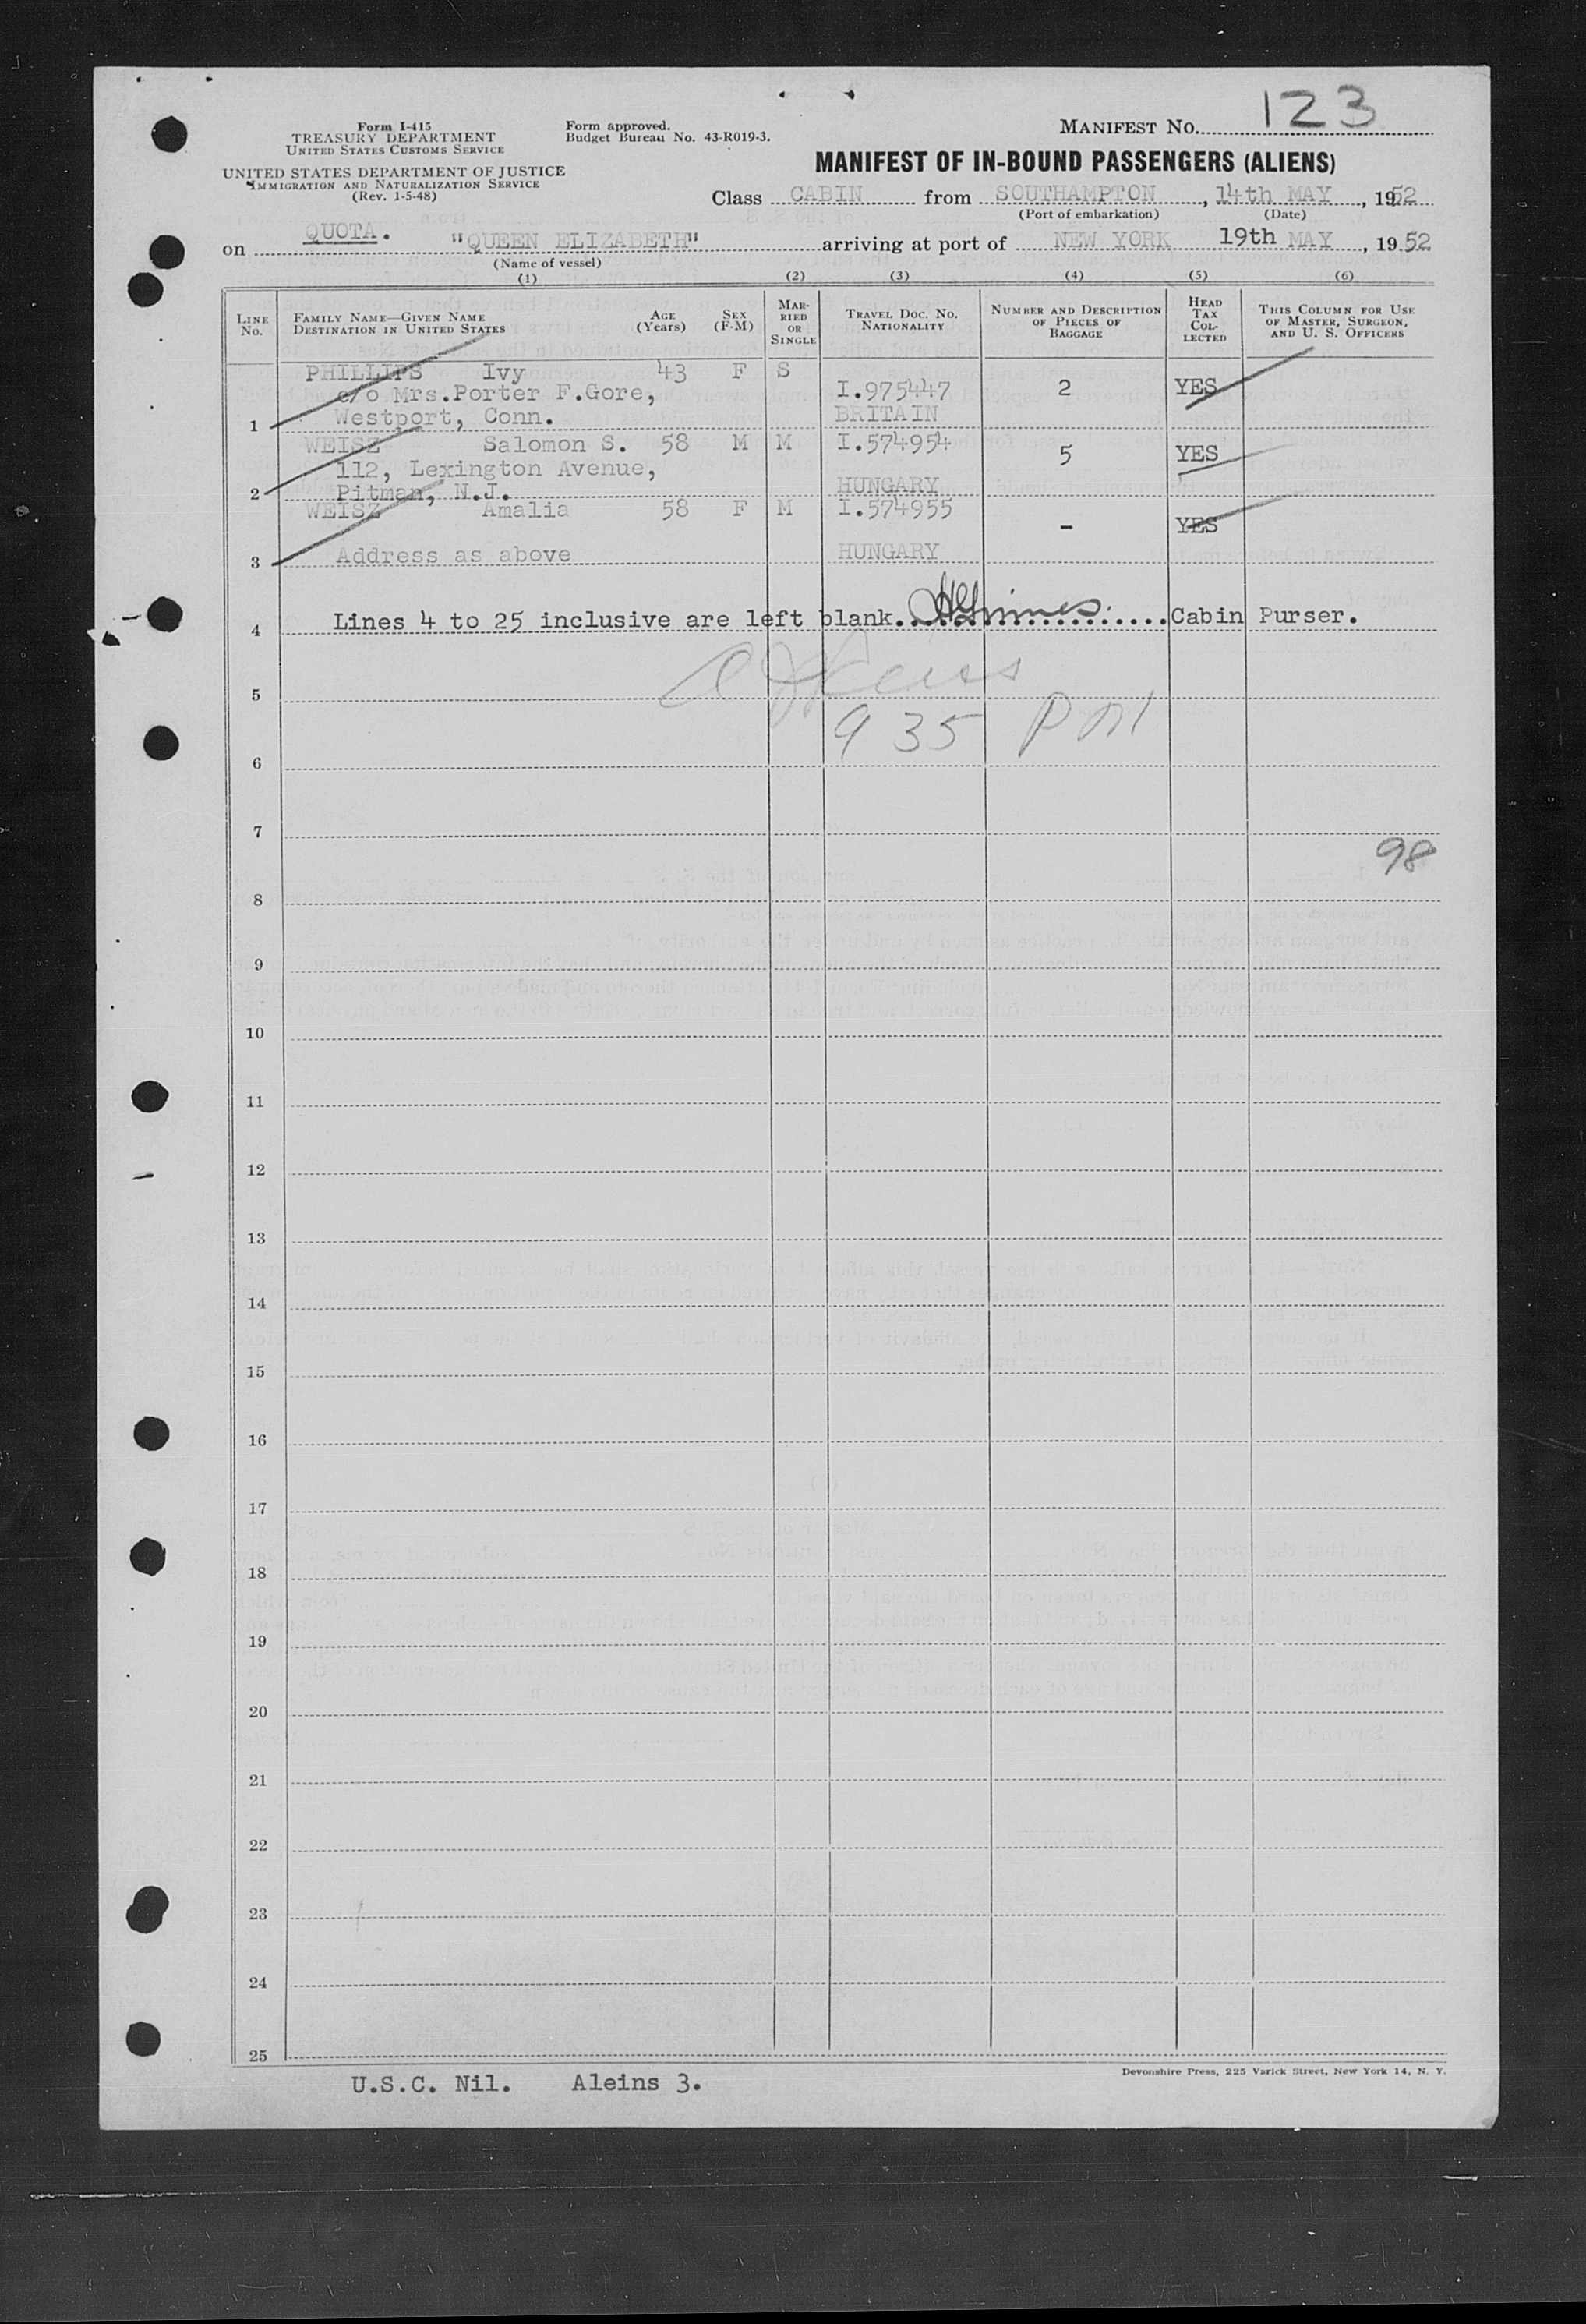 123
Form I-415
TREASURY DEPARTMENT
UNITED STATES CUSTOMS SERVICE
UNITED STATES DEPARTMENT OF JUSTICE
IMMIGRATION AND NATURALIZATION SERVICE
(Rev. 1-5-48)
Form approved.
Budget Bureau No. 43-R019-3.
MANIFEST No.
MANIFEST OF IN-BOUND PASSENGERS (ALIENS)
Class CABIN from SOUTHAMPTON, 14th MAY, 1952
(Port of embarkation) (Date)
on QUOTA. "QUEEN ELIZABETH" arriving at port of NEW YORK 19th MAY, 1952
(Name of vessel)
(1) (2) (3) (4) (5) (6)
LINE No. FAMILY NAME—GIVEN NAME DESTINATION IN UNITED STATES AGE (Years) SEX (F-M) MARRIED OR SINGLE TRAVEL DOC. NO. NATIONALITY NUMBER AND DESCRIPTION OF PIECES OF BAGGAGE HEAD TAX COLLECTED THIS COLUMN FOR USE OF MASTER, SURGEON, AND U. S. OFFICERS
PHILLIPS Ivy 43 F S
c/o Mrs.Porter F.Gore, I.975447 2 YES
1 Westport, Conn. BRITAIN
WEISZ Salomon S. 58 M M I.574954
112, Lexington Avenue, 5 YES
2 Pitman, N.J. HUNGARY
WEISZ Amalia 58 F M I.574955
- YES
3 Address as above HUNGARY
4 Lines 4 to 25 inclusive are left blank. Cabin Purser.
5
9 35 PM
6
7
98
8
9
10
11
12
13
14
15
16
17
18
19
20
21
22
23
24
25
Devonshire Press, 225 Varick Street, New York 14, N. Y.
U.S.C. Nil. Aleins 3.